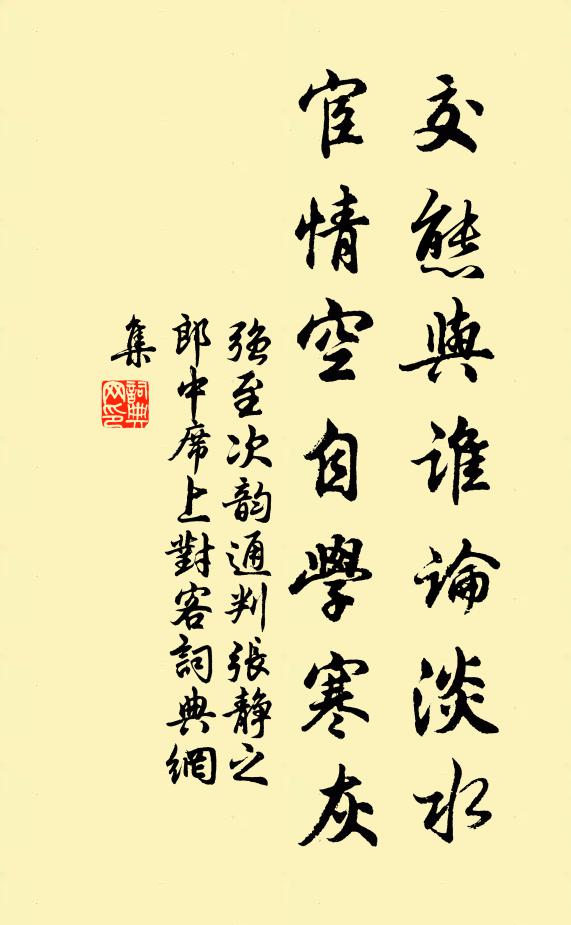 交態與誰論淡水
宦情空自學寒灰
強至次韵通判張靜之
郎中席上對客詞典網
集
詞典
网印